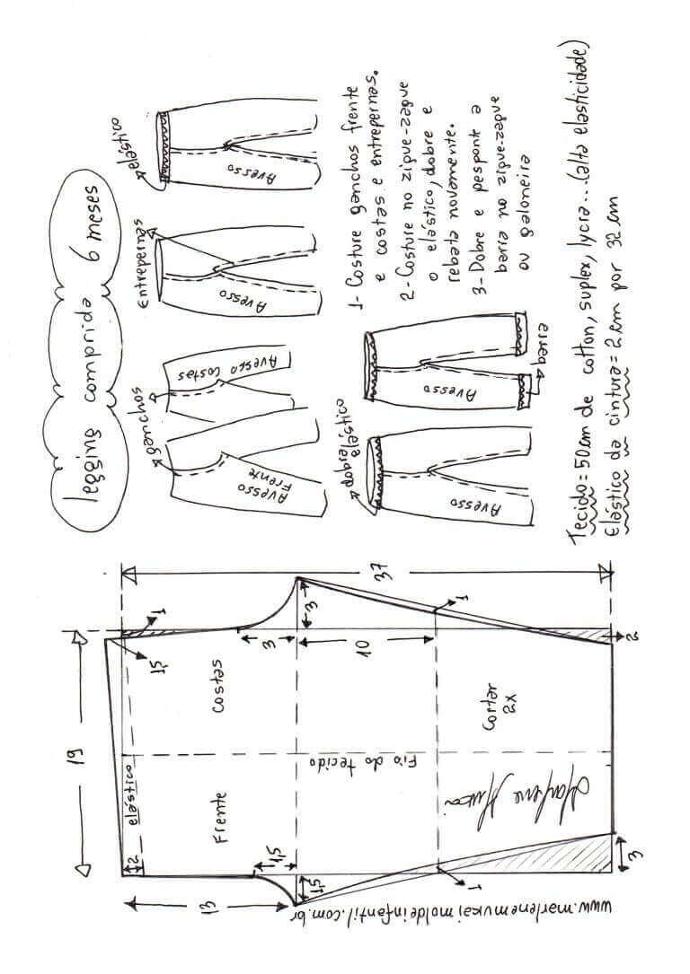 legging comprida 6 meses
ganchos
Avesso
Frente
Avesso Costas
Entrepernas
Avesso
elástico
Avesso
dobre
elástico
Avesso
Avesso
1- Costure ganchos frente
e costas e entrepernas.
2- Costure no zigue-zague
o elástico, dobre e
rebata novamente.
3- Dobre e pesponte a
barra no zigue-zague
ou galoneira
Tecido= 50cm de cotton, suplex, lycra...(alta elasticidade)
Elástico da cintura= 2cm por 32cm
19
37
1,5
1
elástico
2
Frente
Costas
1,5
3
3
1,5
13
10
Fio do tecido
1
1
Cortar
2x
Marlene Mukai
3
2
www.marlenemukaimoldeinfantil.com.br